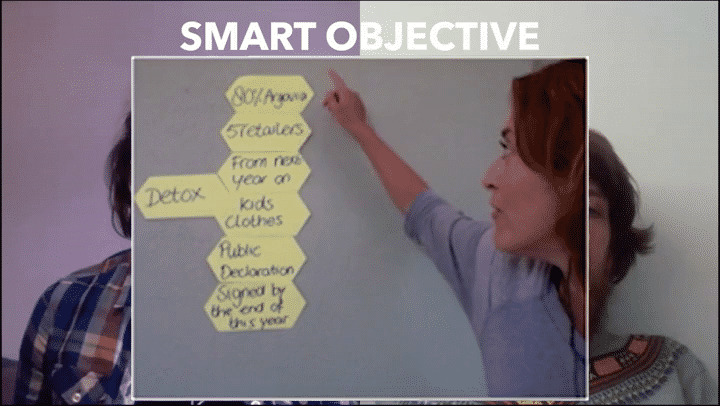 SMART OBJECTIVE
5 retailers
From next
year on
Detox
Kids
Clothes
Public
Declaration
Signed by
the end of
this year